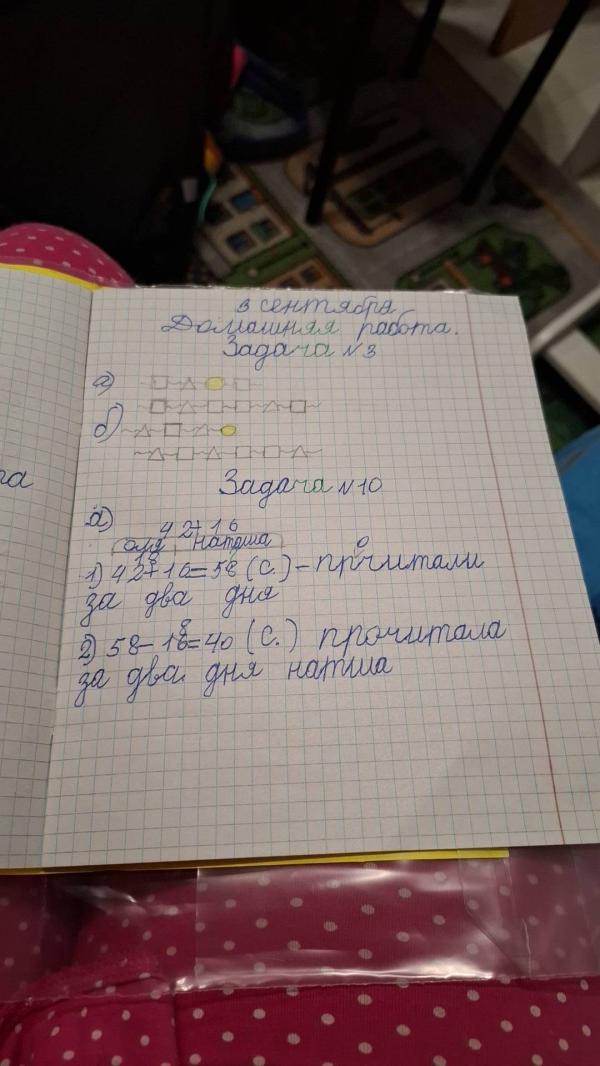 3 сентября
Домашняя работа.
Задача №3
а)
б)
Задача №10
а)
42+16
оля наташа
18
1) 42+16=58 (с.) – прчитали
о
за два дня
8
2) 58–16=40 (с.) прочитала
за два дня наташа